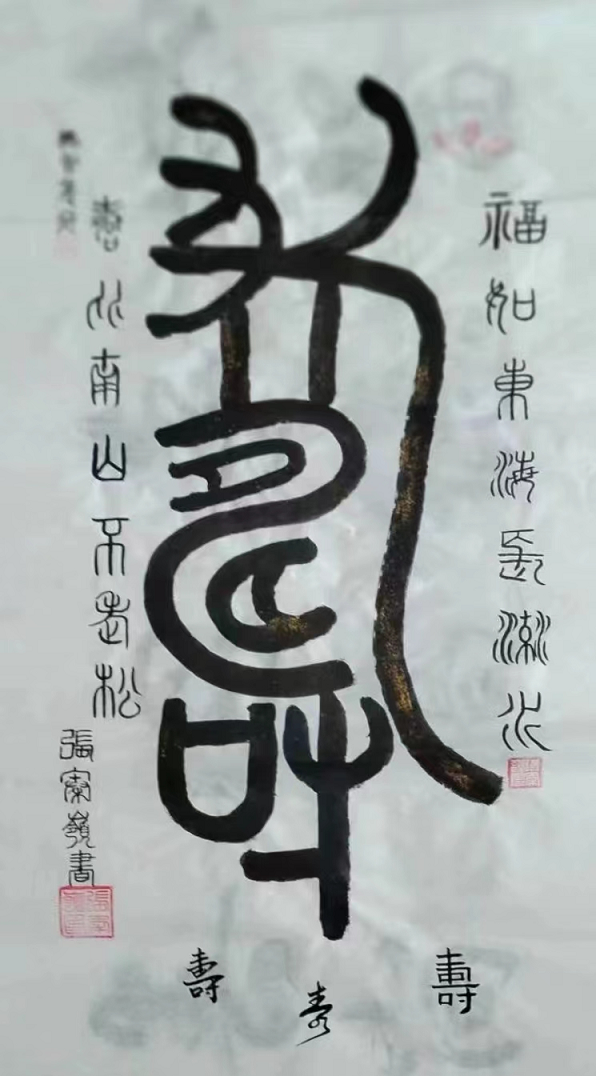 福如東海長流水
壽
壽比南山不老松
張秦嶺書
壽
壽
壽